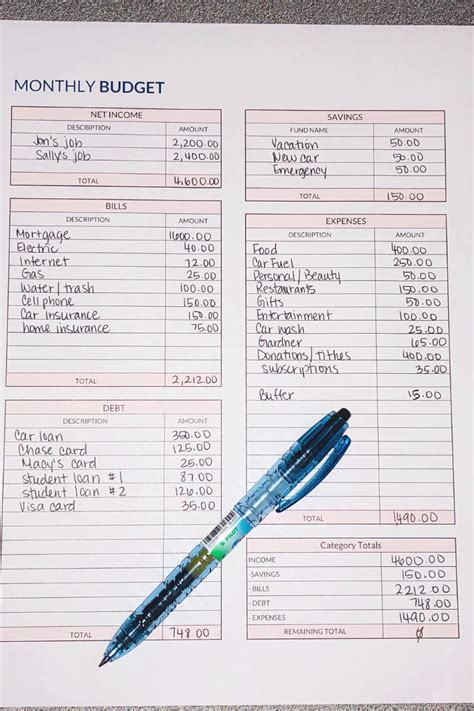 MONTHLY BUDGET
NET INCOME
DESCRIPTION AMOUNT
Jon's job 2,200.00
Sally's job 2,400.00
TOTAL 4,600.00
BILLS
DESCRIPTION AMOUNT
Mortgage 1600.00
Electric 40.00
Internet 72.00
Gas 25.00
Water/trash 100.00
Cell phone 150.00
Car insurance 150.00
home insurance 75.00
TOTAL 2,212.00
DEBT
DESCRIPTION AMOUNT
Car loan 350.00
Chase card 125.00
Macy's card 25.00
student loan #1 87.00
student loan #2 126.00
Visa card 35.00
TOTAL 748.00
SAVINGS
FUND NAME AMOUNT
Vacation 50.00
New car 50.00
Emergency 50.00
TOTAL 150.00
EXPENSES
DESCRIPTION AMOUNT
Food 400.00
Car Fuel 250.00
Personal/Beauty 50.00
Restaurants 150.00
Gifts 50.00
Entertainment 100.00
Car wash 25.00
Gardner 65.00
Donations/tithes 400.00
subscriptions 35.00
Buffer 15.00
TOTAL 1490.00
Category Totals
INCOME 4600.00
- SAVINGS 150.00
- BILLS 2212.00
- DEBT 748.00
- EXPENSES 1490.00
REMAINING TOTAL 0
PILOT